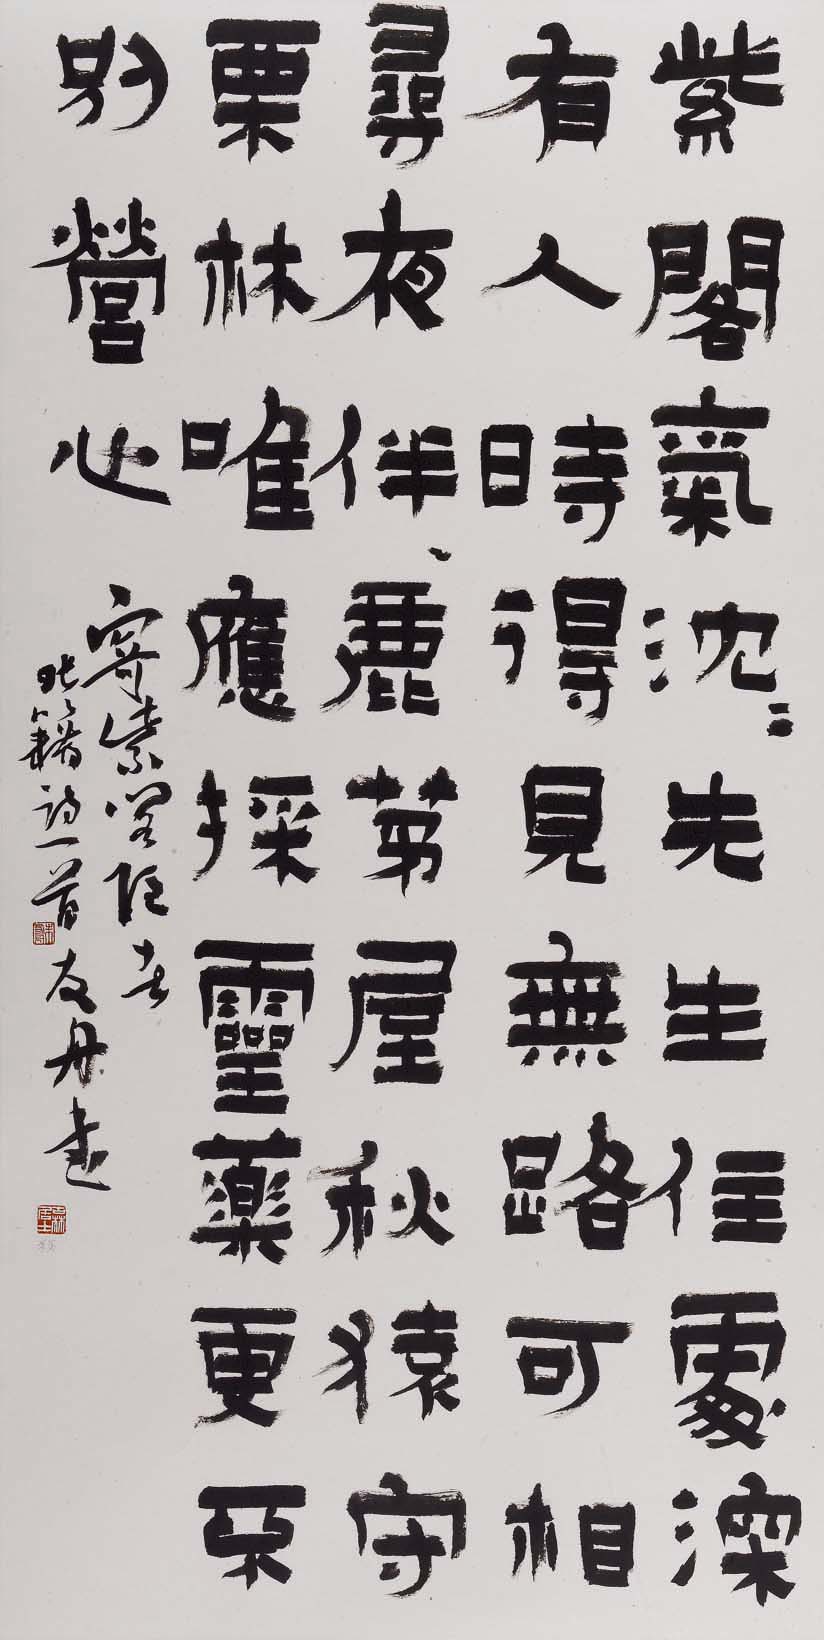 紫閣氣沈〻先生住處深
有人時得見無路可相
尋夜伴鹿茅屋秋猿守
栗林唯應採靈藥更不
別營心
寄紫閣隱者
張籍詩一首友丹書